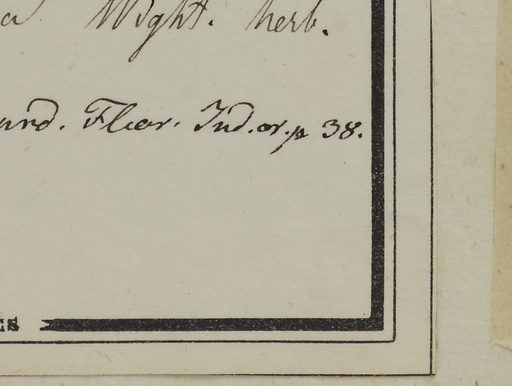 a Wight. herb.
urd. Flor. Ind. or. p 38.
ES